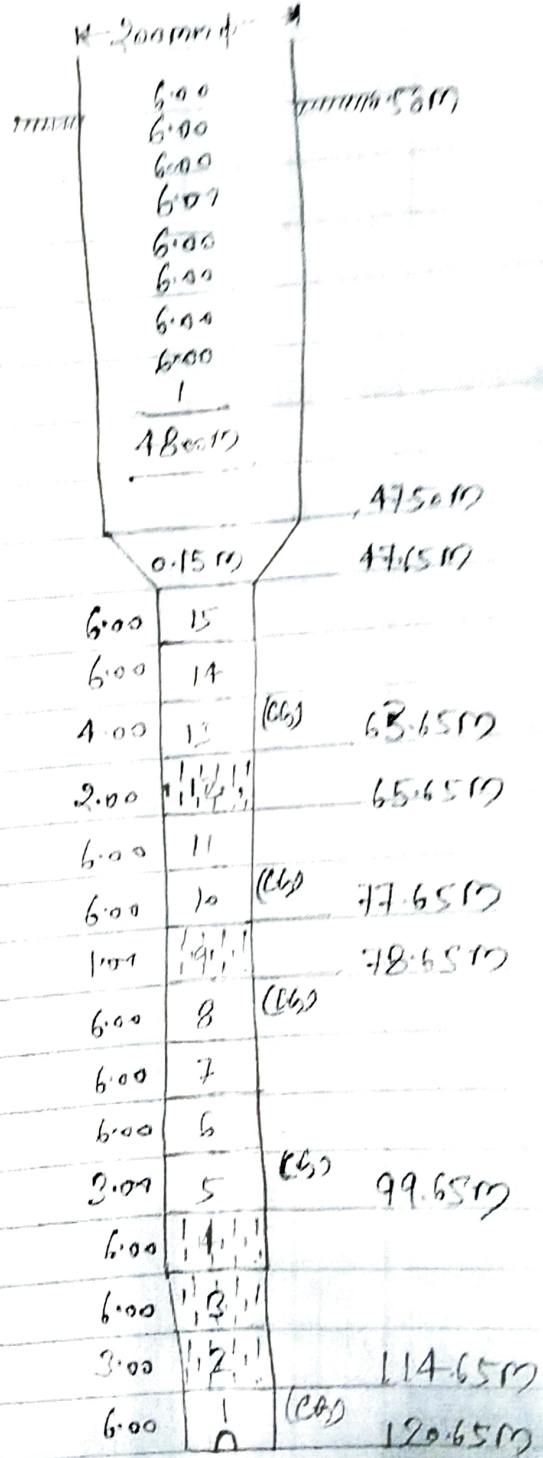 200mm φ
6.00 .50M
6.00
6.00
6.00
6.00
6.00
6.00
6.00
1
48.00M
47.50M
0.15M 47.65M
6.00 15
6.00 14
4.00 13 (CG) 63.65M
2.00 12 65.65M
6.00 11
6.00 10 (CG) 77.65M
1.00 9 78.65M
6.00 8 (CG)
6.00 7
6.00 6
3.00 5 (CG) 99.65M
6.00 4
6.00 3
3.00 2 114.65M
6.00 1 (CG) 120.65M